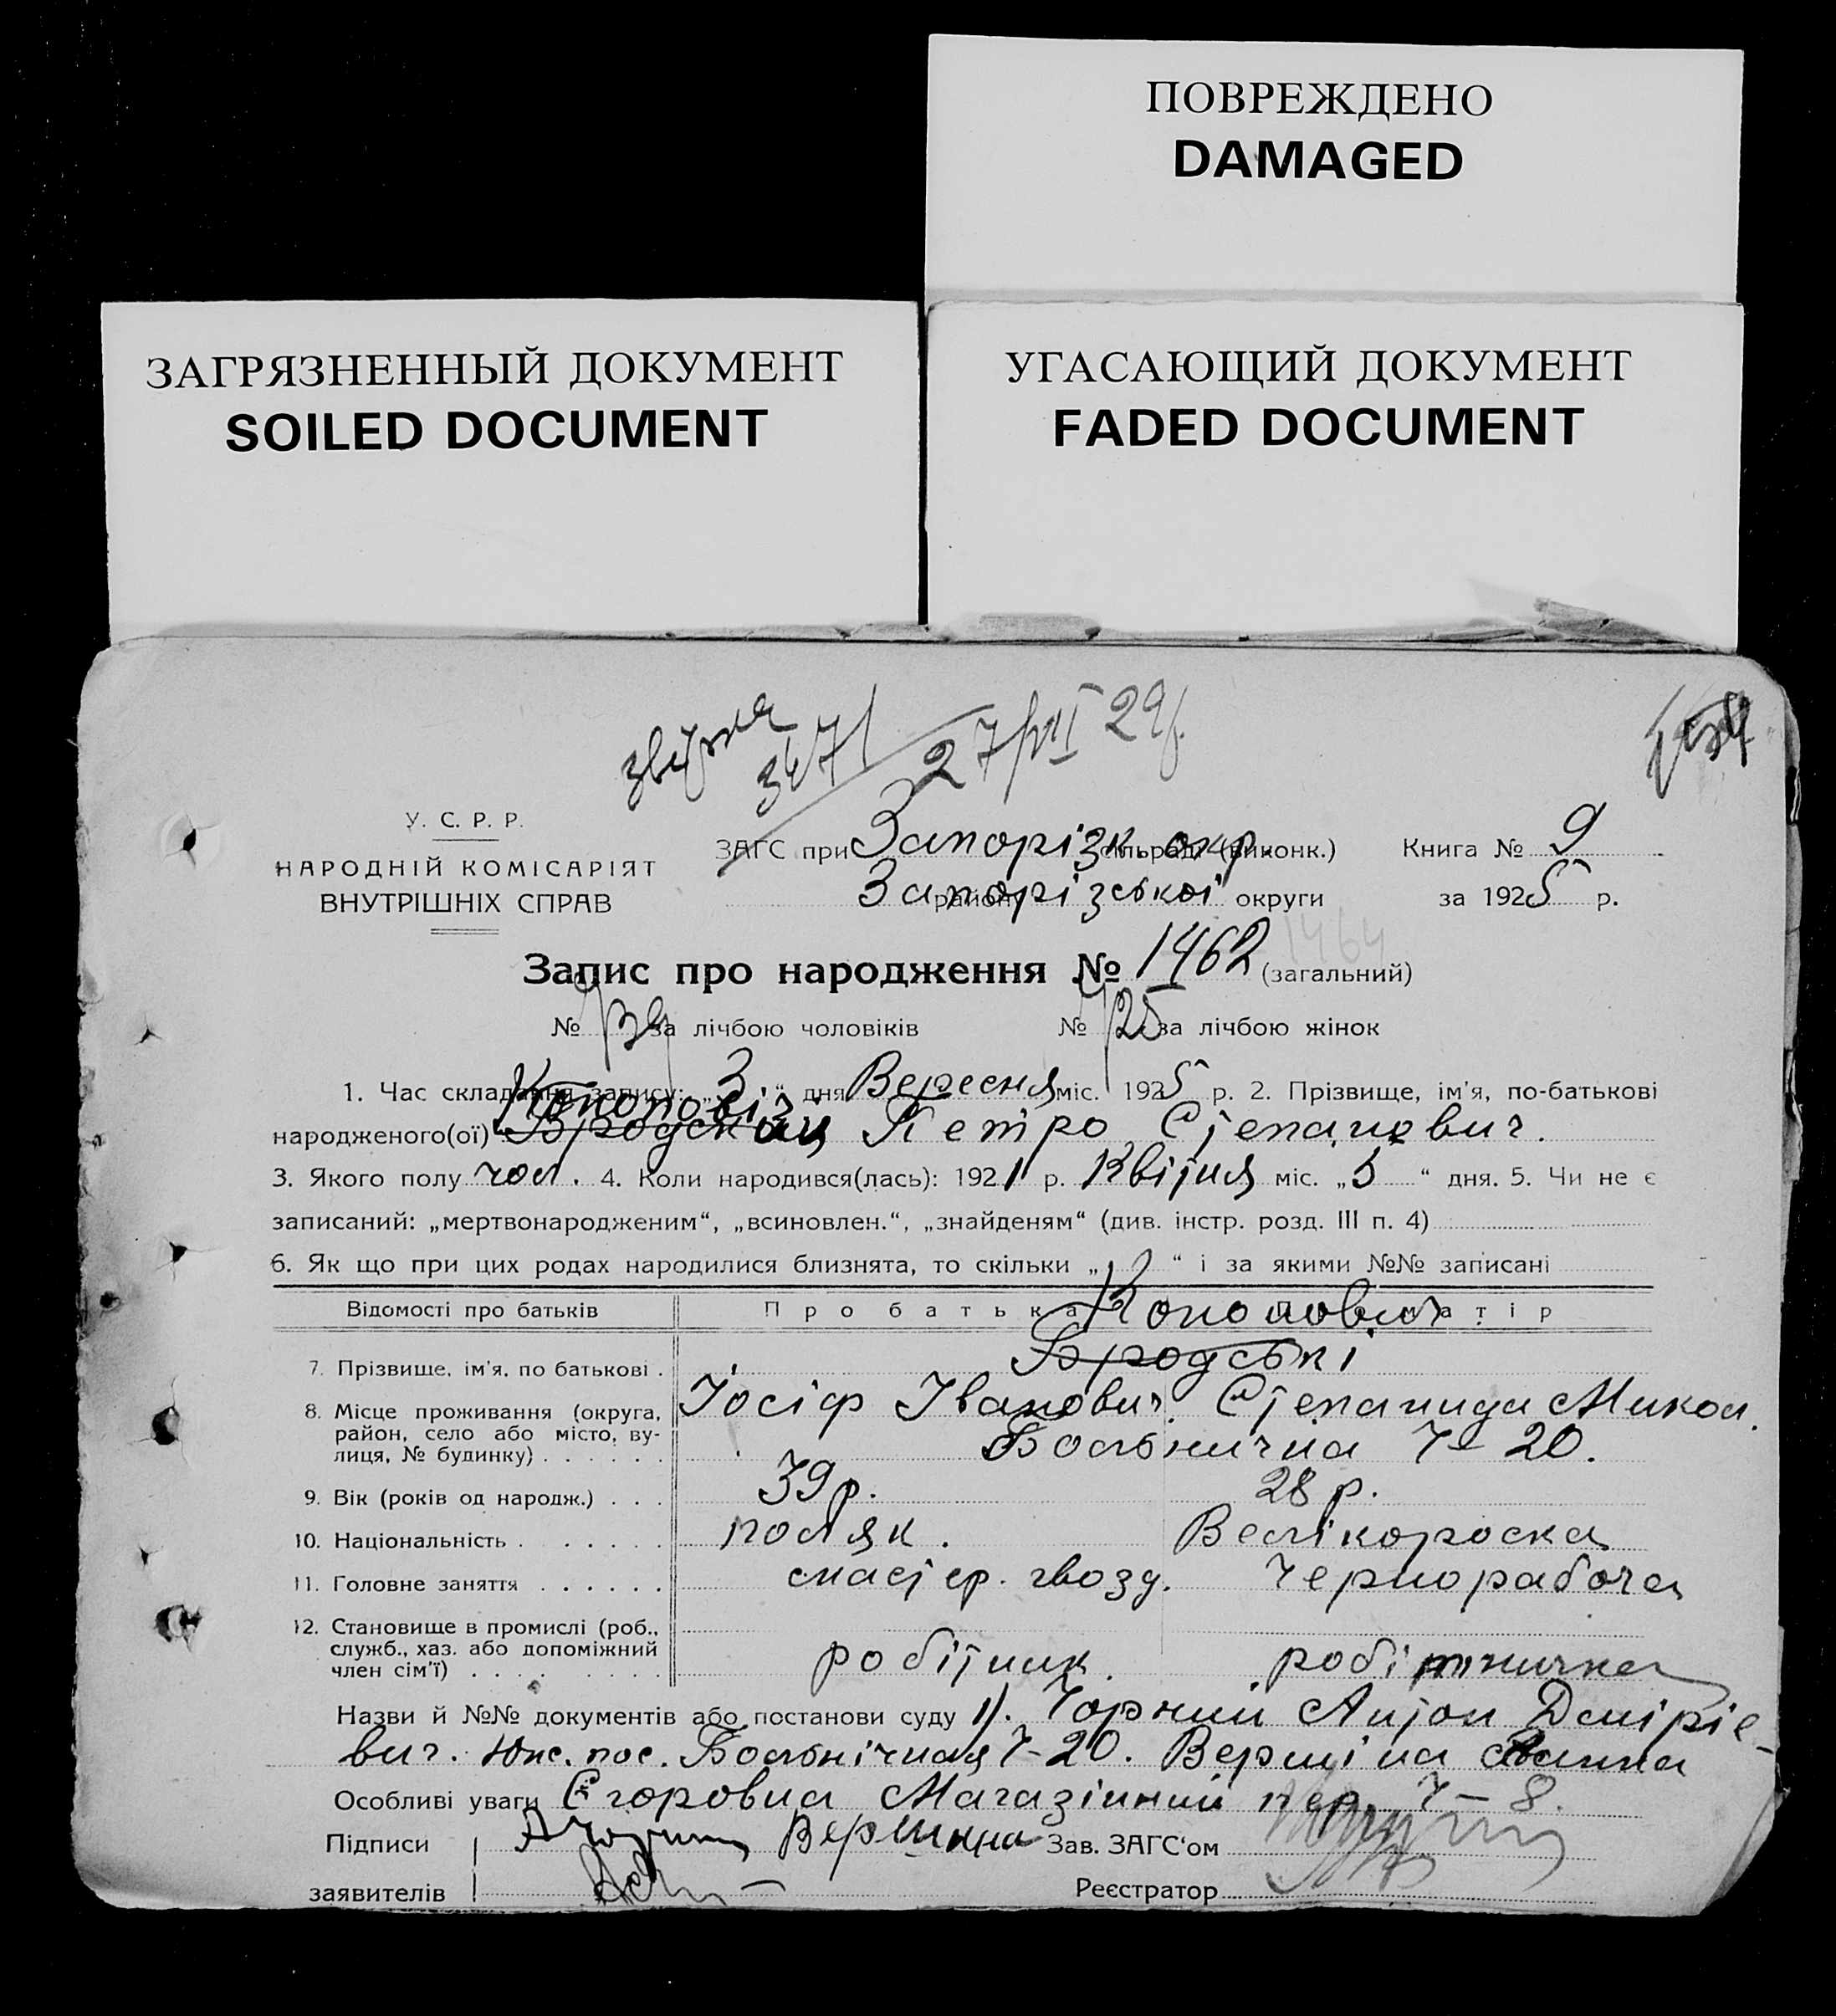 ПОВРЕЖДЕНО
DAMAGED
ЗАГРЯЗНЕННЫЙ ДОКУМЕНТ
SOILED DOCUMENT
УГАСАЮЩИЙ ДОКУМЕНТ
FADED DOCUMENT
3471 27/VII 29р.
У. С. Р. Р.
НАРОДНІЙ КОМІСАРІЯТ
ВНУТРІШНІХ СПРАВ
ЗАГС при Запорізк окр. сільраді (виконк.)
району Запорізської округи
Книга № 9
за 1925 р.
Запис про народження № 1462 (загальний) 1464
№ за лічбою чоловіків № за лічбою жінок
1. Час складання запису: „3“ дня Вересня міс. 1925 р. 2. Прізвище, ім'я, по-батькові
Кононовіч
народженого(ої) Бродский Петро Степанович.
3. Якого полу чол. 4. Коли народився(лась): 1921 р. Квітня міс. „5“ дня. 5. Чи не є
записаний: „мертвонародженим“, „всиновлен.“, „знайденям“ (див. інстр. розд. III п. 4)
6. Як що при цих родах народилися близнята, то скільки „ “ і за якими №№ записані
Відомості про батьків Про батька Про матір
Кононович
7. Прізвище, ім'я, по батькові . Бродські
8. Місце проживання (округа, район, село або місто, вулиця, № будинку) . . . . . . Іосіф Іванович. Степанида Микол.
Больнична 7-20.
9. Вік (років од народж.) . . . 39 р. 28 р.
10. Національність . . . . . . поляк. Велікороска
11. Головне заняття . . . . . . мастер. гвозд. Чернорабоча
12. Становище в промислі (роб., служб., хаз. або допоміжний член сім'ї) . . . . . . . . . робітник. робітничка
Назви й №№ документів або постанови суду 1). Чорний Антон Дмітріе-
вич. Юж. пос. Больнічная 7-20. Вершіна Ганна
Особливі уваги Єгоровна Магазінний пер. 7-8.
Підписи Вершина Зав. ЗАГС'ом
заявителів Реєстратор